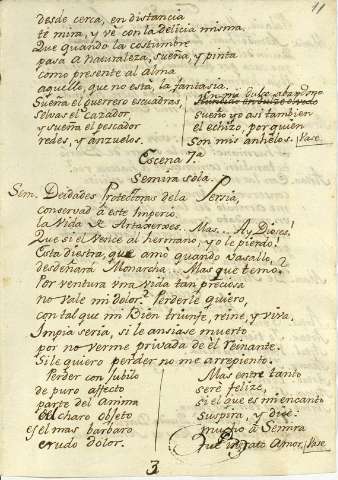 11
desde cerca, en distancia
te mira, y vè con la delicia misma.
Que quando la costumbre
pasa à naturaleza, sueña, y pinta
como presente al alma
aquello, que no està, la fantasia.
Sueña el guerrero escuadras,
selvas el cazador,
y sueña el pescador
redes, y anzuelos.
En mi dulce abandono
sueño yo asi tambien
el echizo, por quien
son mis anhelos. Vase.
Escena 7.a
Semira sola.
Sem. Deidades Protectoras de la Persia,
conservad à este Imperio
la Vida de Artaxerxes. Mas... Ay Dioses!
Que si el Vence al hermano, yo le pierdo!
Esta diestra, que amò quando vasallo,
desdeñarà Monarcha. Mas que temo?
Por ventura una vida tan precisa
no vale mi dolor? Perderle quiero,
con tal que mi Bien triunfe, reine, y viva,
Impia seria, si le ansiase muerto
por no verme privada de èl Reinante.
Si le quiero perder no me arrepiento.
Perder con jubilo
de puro affecto
parte del anima
charo objeto
es el mas barbaro
crudo dolor.
Mas entre tanto
serè felize,
si el que es mi encanto
suspira, y dice:
mucho à Semira
fue grato Amor. Vase
3